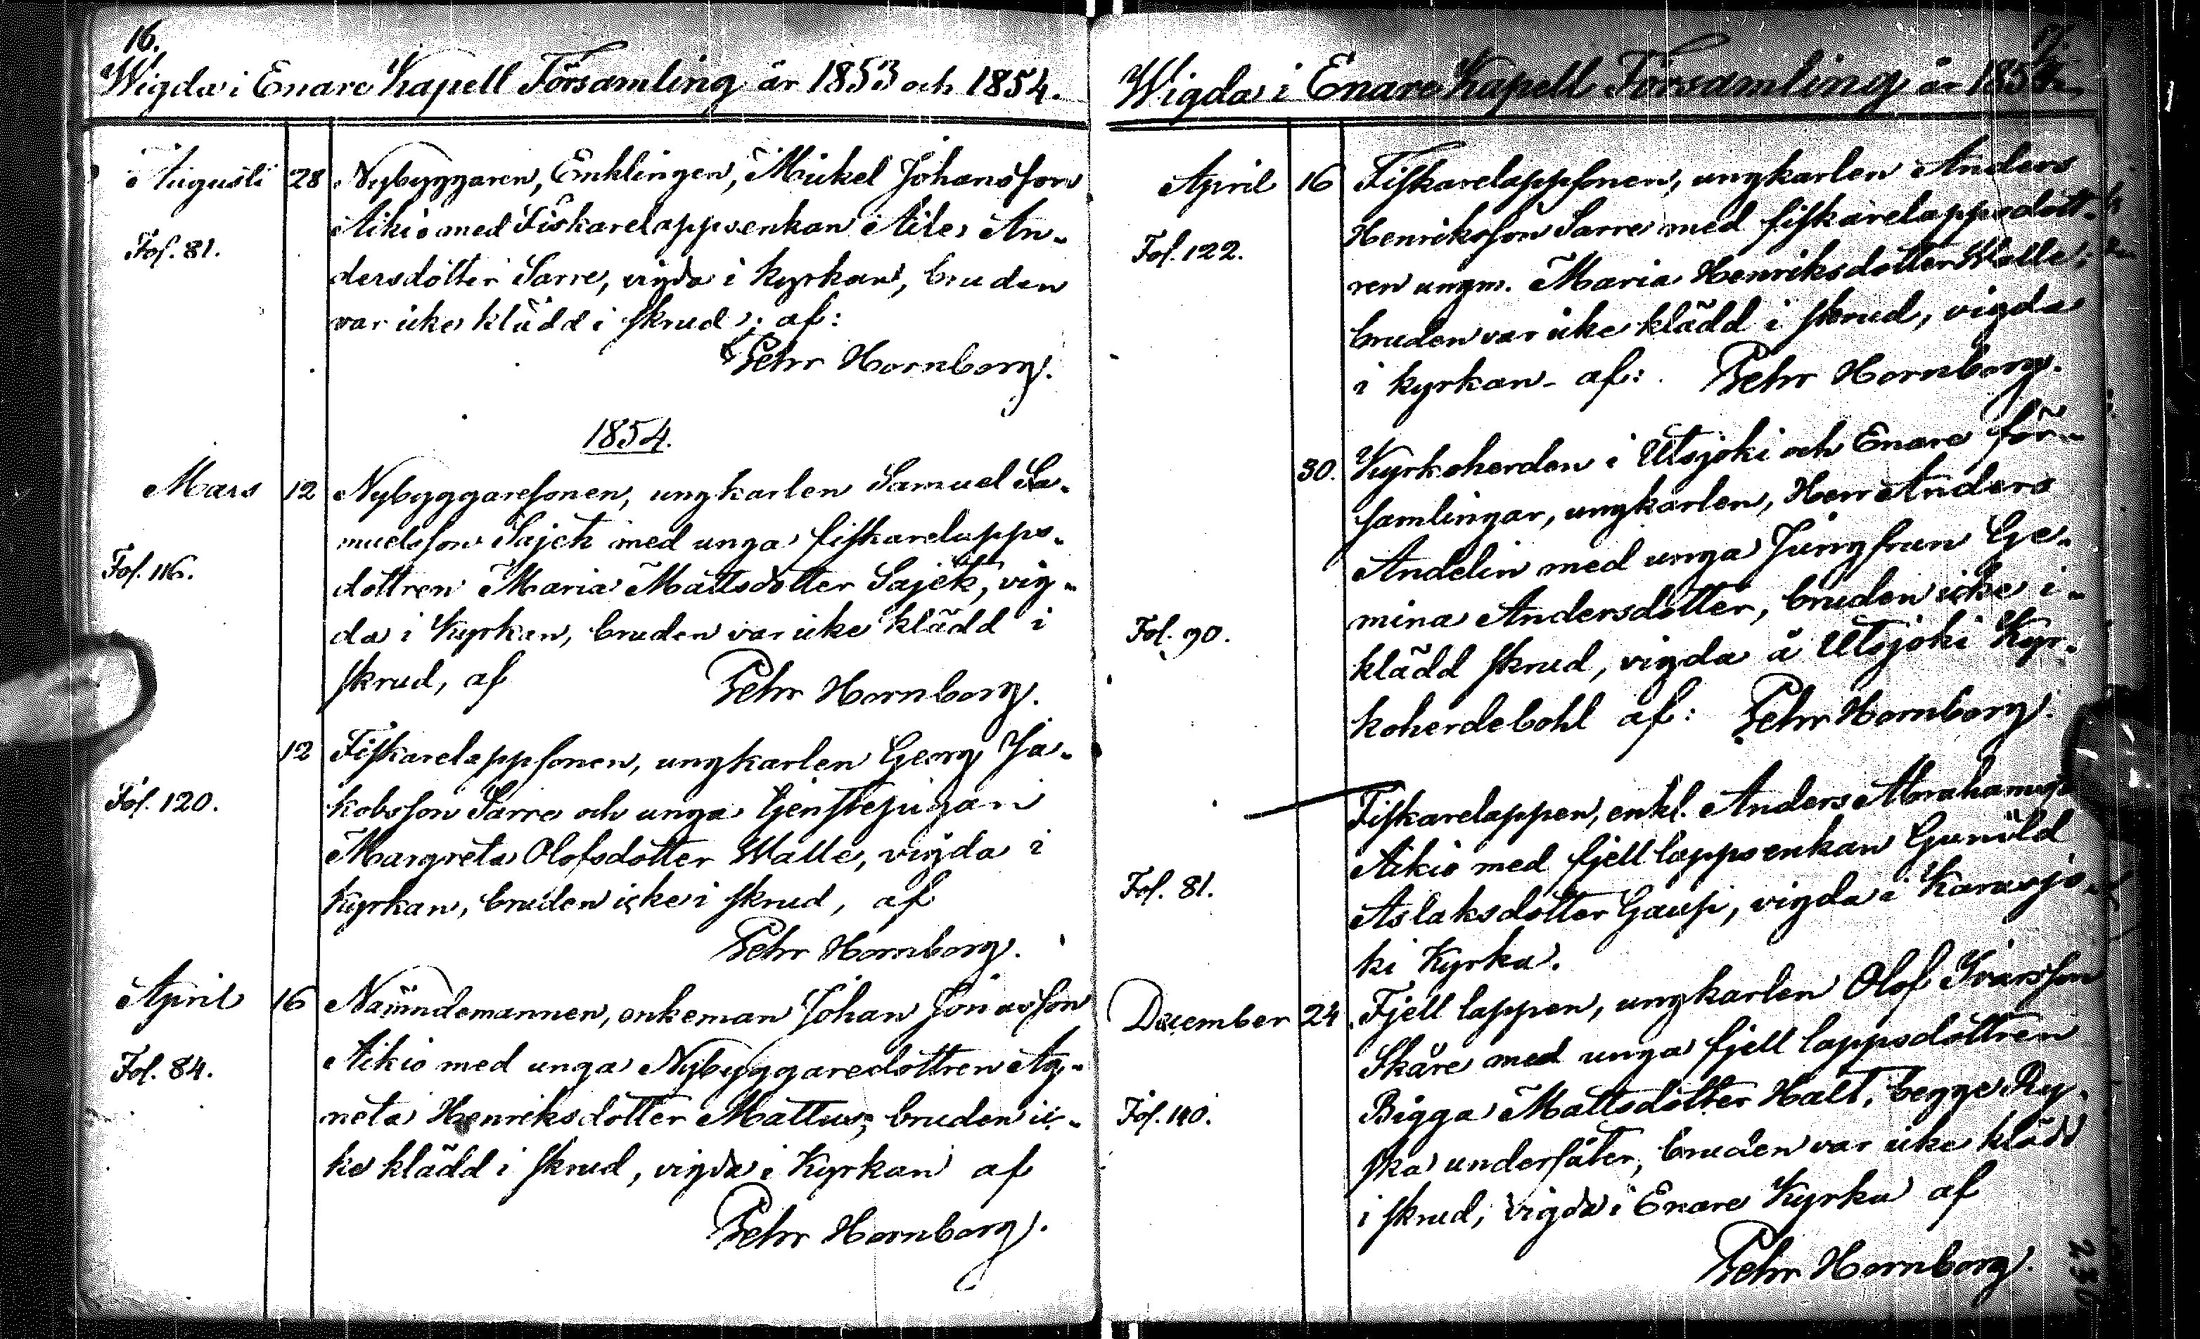 16.
Wigda i Enare Kapell Församling år 1853 och 1854.
Augusti 28 Nybyggaren, Enklingen, Mickel Johansson
Aikio med Fiskarelappsenkan Ailes An-
Fol. 81.
dersdotter Sarre, vigda i kyrkan, bruden
var icke klädd i skrud; af:
Pehr Hornborg.
1854.
Mars 12 Nybyggaresonen, ungkarlen Samuel Sa-
muelsson Sajek med unga fiskarelapps-
Fol. 116.
dottren Maria Mattsdotter Sajek, vig-
da i Kyrkan, bruden var icke klädd i
skrud, af Pehr Hornborg.
12 Fiskarelappsonen, ungkarlen Georg Ja-
Fol. 120.
kobsson Sarre och unga tjenstepigan
Margreta Olofsdotter Walle, vigda i
Kyrkan, bruden icke i skrud, af
Pehr Hornborg.
April 16 Nämndemannen, enkeman Johan Jonasson
Fol. 84.
Aikio med unga Nybyggaredottren Ag-
neta Henriksdotter Mattus; bruden ic-
ke klädd i skrud, vigda i Kyrkan af
Pehr Hornborg.
17.
Wigda i Enare Kapell Församling år 1854.
April 16 Fiskarelappsonen, ungkarlen Anders
Henriksson Sarre med fiskarelappsdott-
Fol. 122.
ren ungm. Maria Henriksdotter Walle;
bruden var icke klädd i skrud, vigda
i kyrkan af: Pehr Hornborg.
30. Kyrkoherden i Utsjoki och Enare för-
samlingar, ungkarlen, Herr Anders
Andelin med unga Jungfrun Ge-
mina Andersdotter, bruden icke i-
Fol. 90.
klädd skrud, vigda å Utsjoki Kyr-
koherdebohl af: Pehr Hornborg.
Fiskarelappen, enkl. Anders Abrahamss
Aikio med fjellappsenkan Gunild
Fol. 81.
Aslaksdotter Gaup, vigda i Karasjo-
ki Kyrka.
December 24 Fjell lappen, ungkarlen Olof Ivarsson
Skåre med unga fjell lappsdottren
Fol. 140.
Bigga Mattsdotter Halt, begge Ry-
ska undersåter, bruden var icke klädd
i skrud, vigda i Enare Kyrka af
Pehr Hornborg.